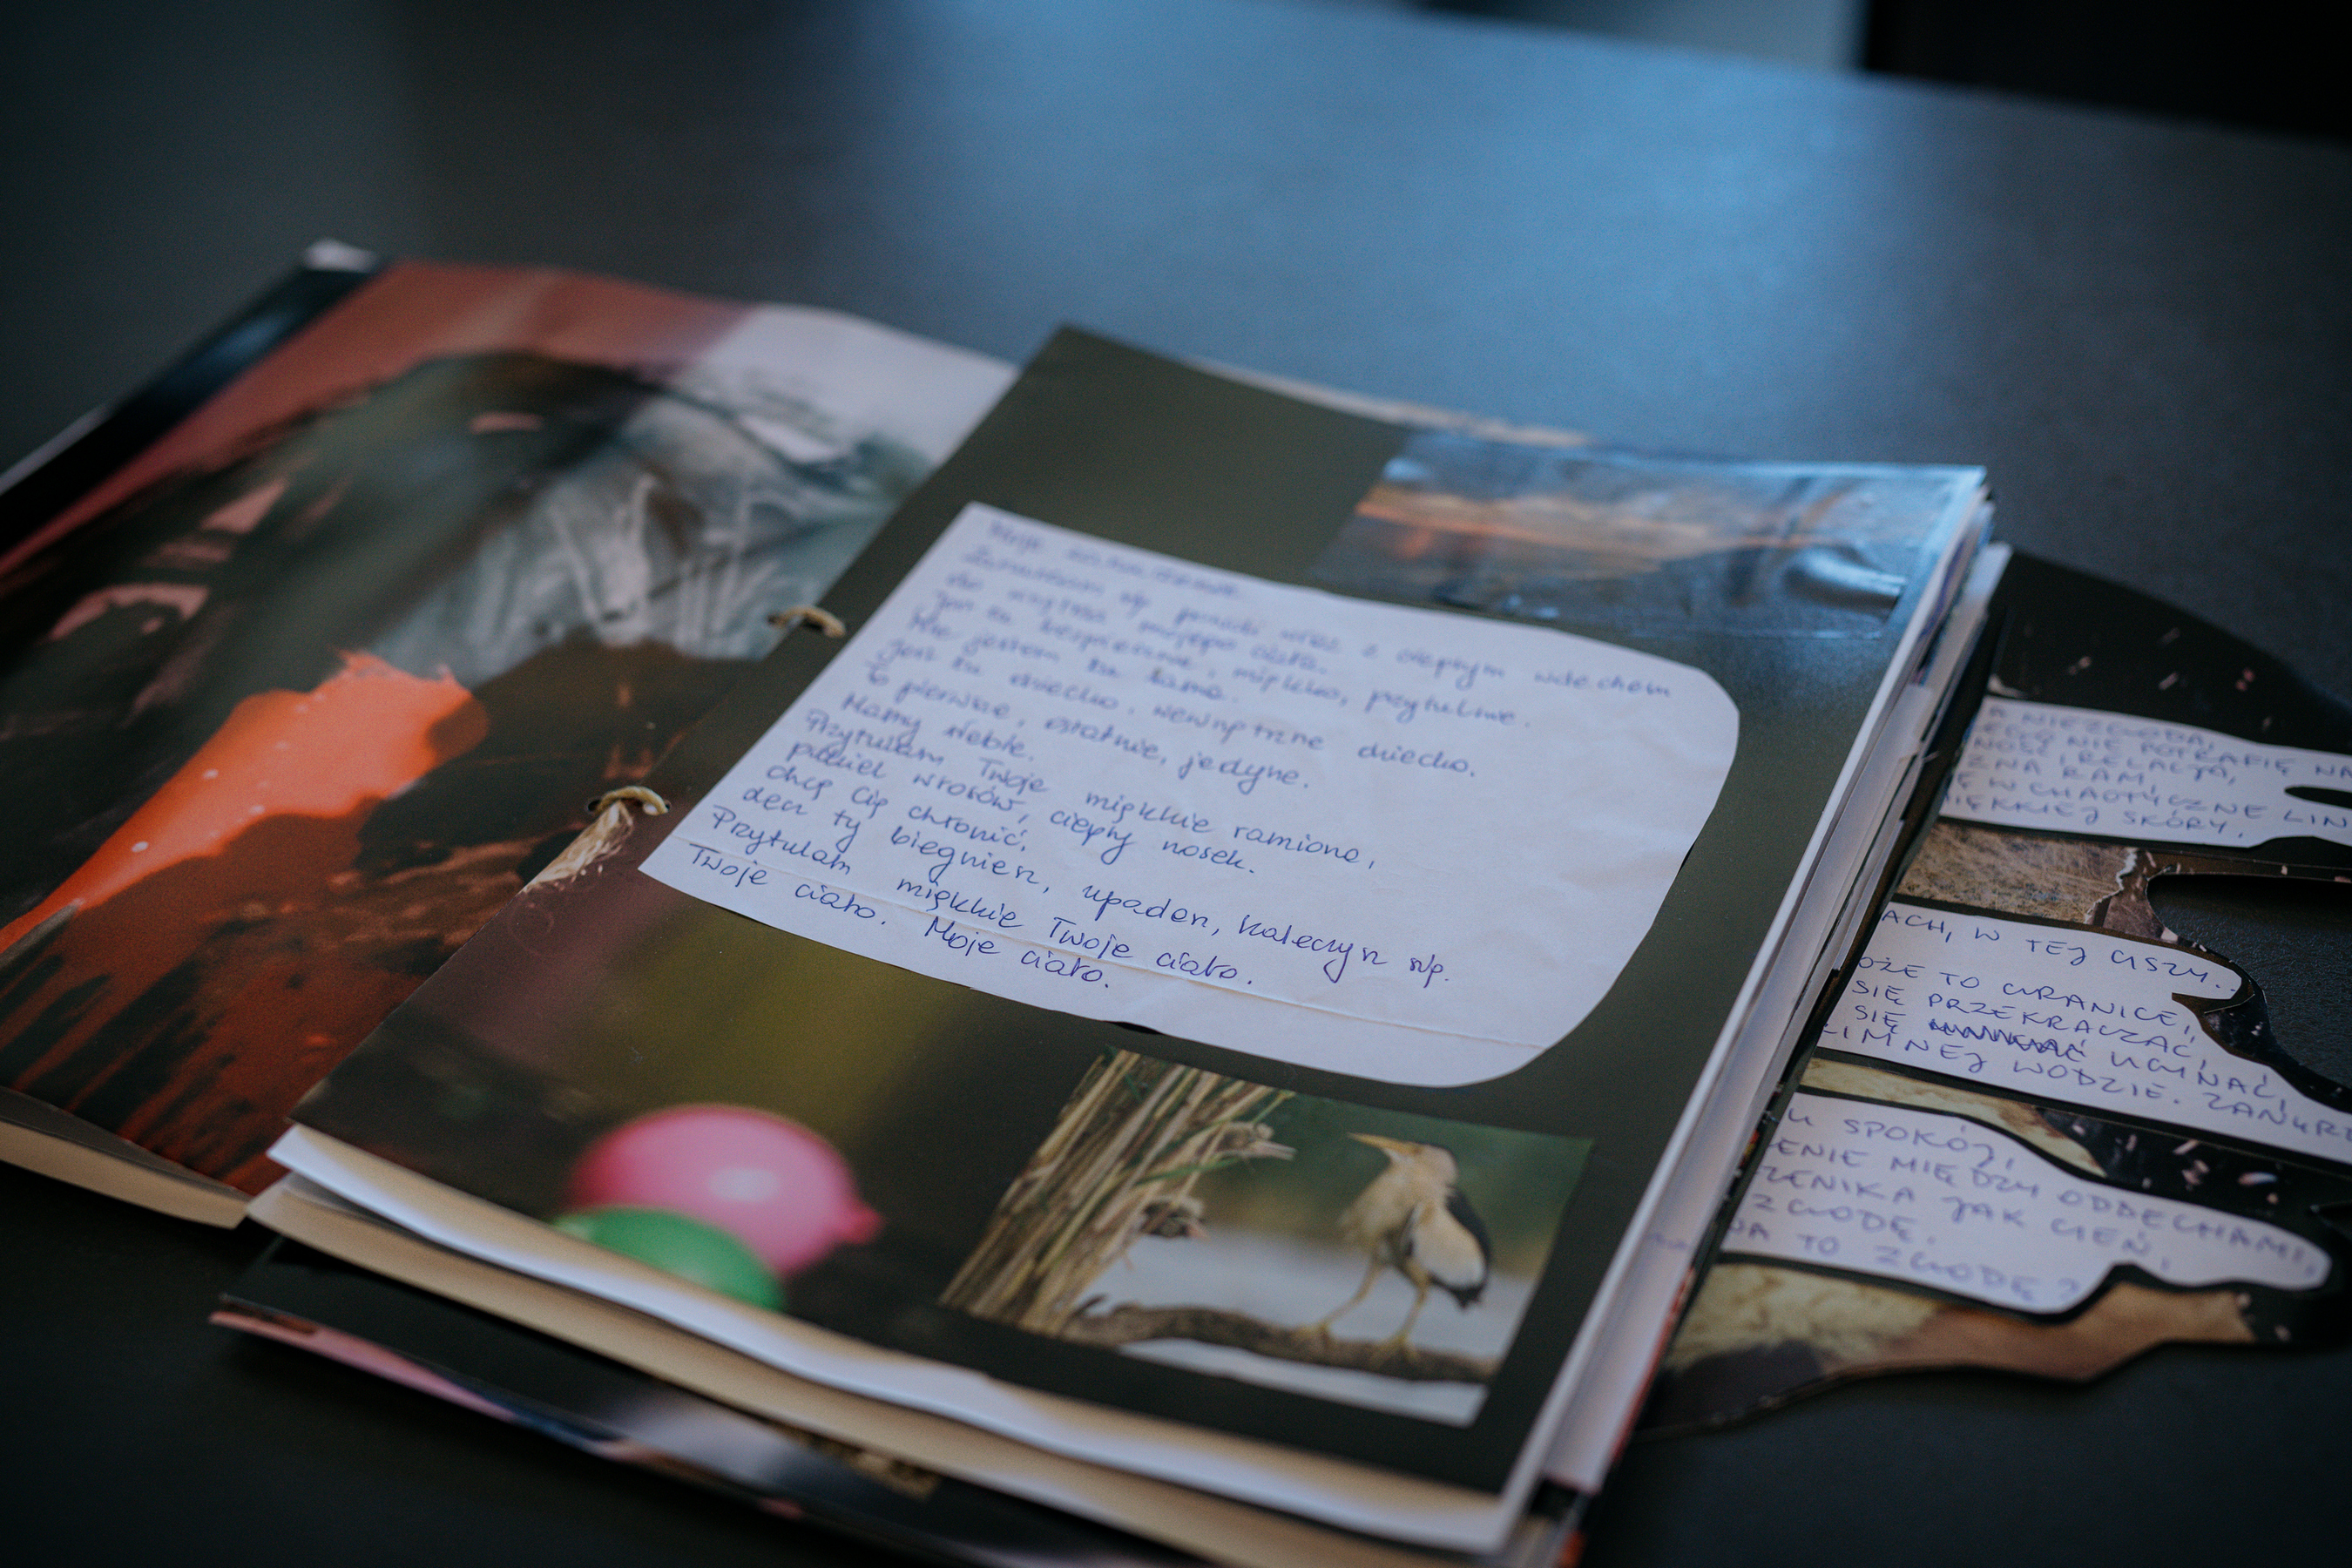 Moje
Zanurzam się prądki wraz z ciepłym wdechem
do wnętrza mojego ciała.
Jest tu bezpiecznie, miękko, przytulnie.
Nie jestem tu sama.
Jest tu dziecko. Wewnętrzne dziecko.
To pierwsze, ostatnie, jedyne.
Mamy siebie.
Przytulam Twoje miękkie ramiona,
pukiel włosów, ciepły nosek.
Chcę Cię chronić,
den ty biegniesz, upadasz, kaleczysz się.
Przytulam miękkie Twoje ciało.
Twoje ciało. Moje ciało.
A NIEZGODA,
NIE POTRAFIĘ NA
NOŚĆ I RELACJA,
ZNA RAM,
Ę W CHAOTYCZNE LIN
IĘKKIEJ SKÓRY.
ACH, W TEJ CISZY..
OŻE TO GRANICE,
SIĘ PRZEKRACZAĆ,
SIĘ UGINAĆ,
ZIMNEJ WODZIE. ZANURZ
U SPOKÓJ,
ENIE MIĘDZY ODDECHAMI,
ZENIKA JAK CIEŃ,
ZGODĘ.
NA TO ZGODĘ?